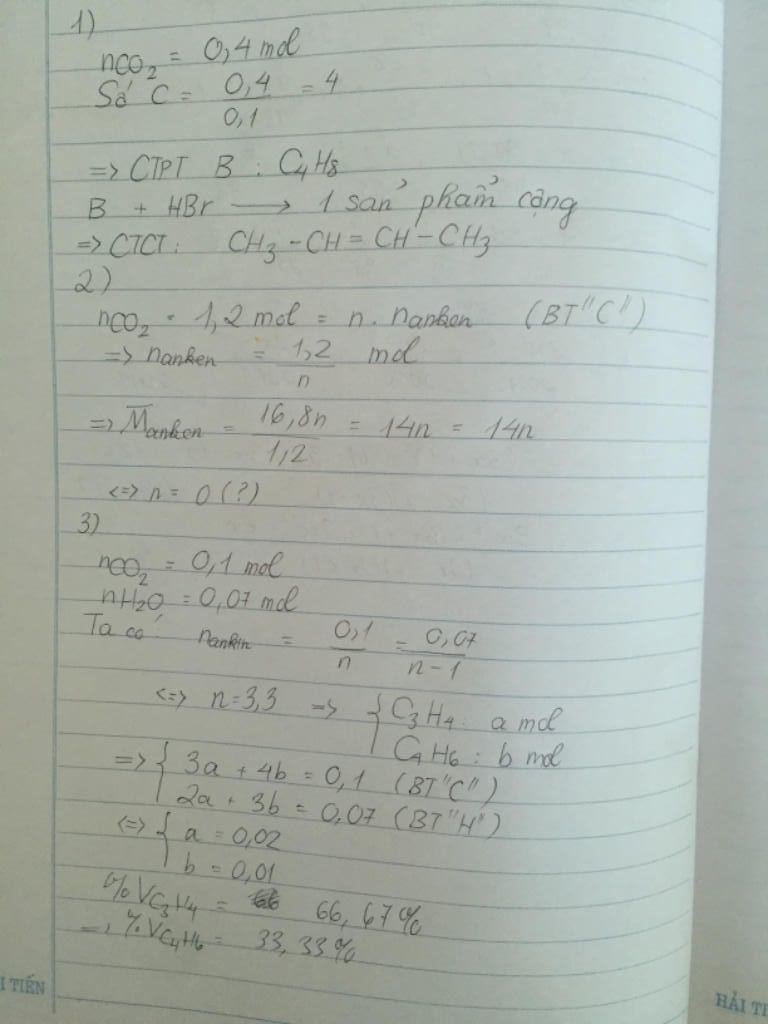 1)
nCO2 = 0,4 mol
Số C = 0,4 / 0,1 = 4
=> CTPT B : C4H8
B + HBr → 1 sản phẩm cộng
=> CTCT : CH3 - CH = CH - CH3
2)
nCO2 = 1,2 mol = n . nanken (BT"C")
=> nanken = 1,2 / n mol
=> Manken = 16,8n / 1,2 = 14n = 14n
<=> n = 0 (?)
3)
nCO2 = 0,1 mol
nH2O = 0,07 mol
Ta có : nankin = 0,1 / n = 0,07 / n-1
<=> n = 3,3 => { C3H4 : a mol
C4H6 : b mol
=> { 3a + 4b = 0,1 (BT"C")
2a + 3b = 0,07 (BT"H")
<=> { a = 0,02
b = 0,01
%VC3H4 = 66,67%
%VC4H6 = 33,33%
I TIẾN
HẢI TI